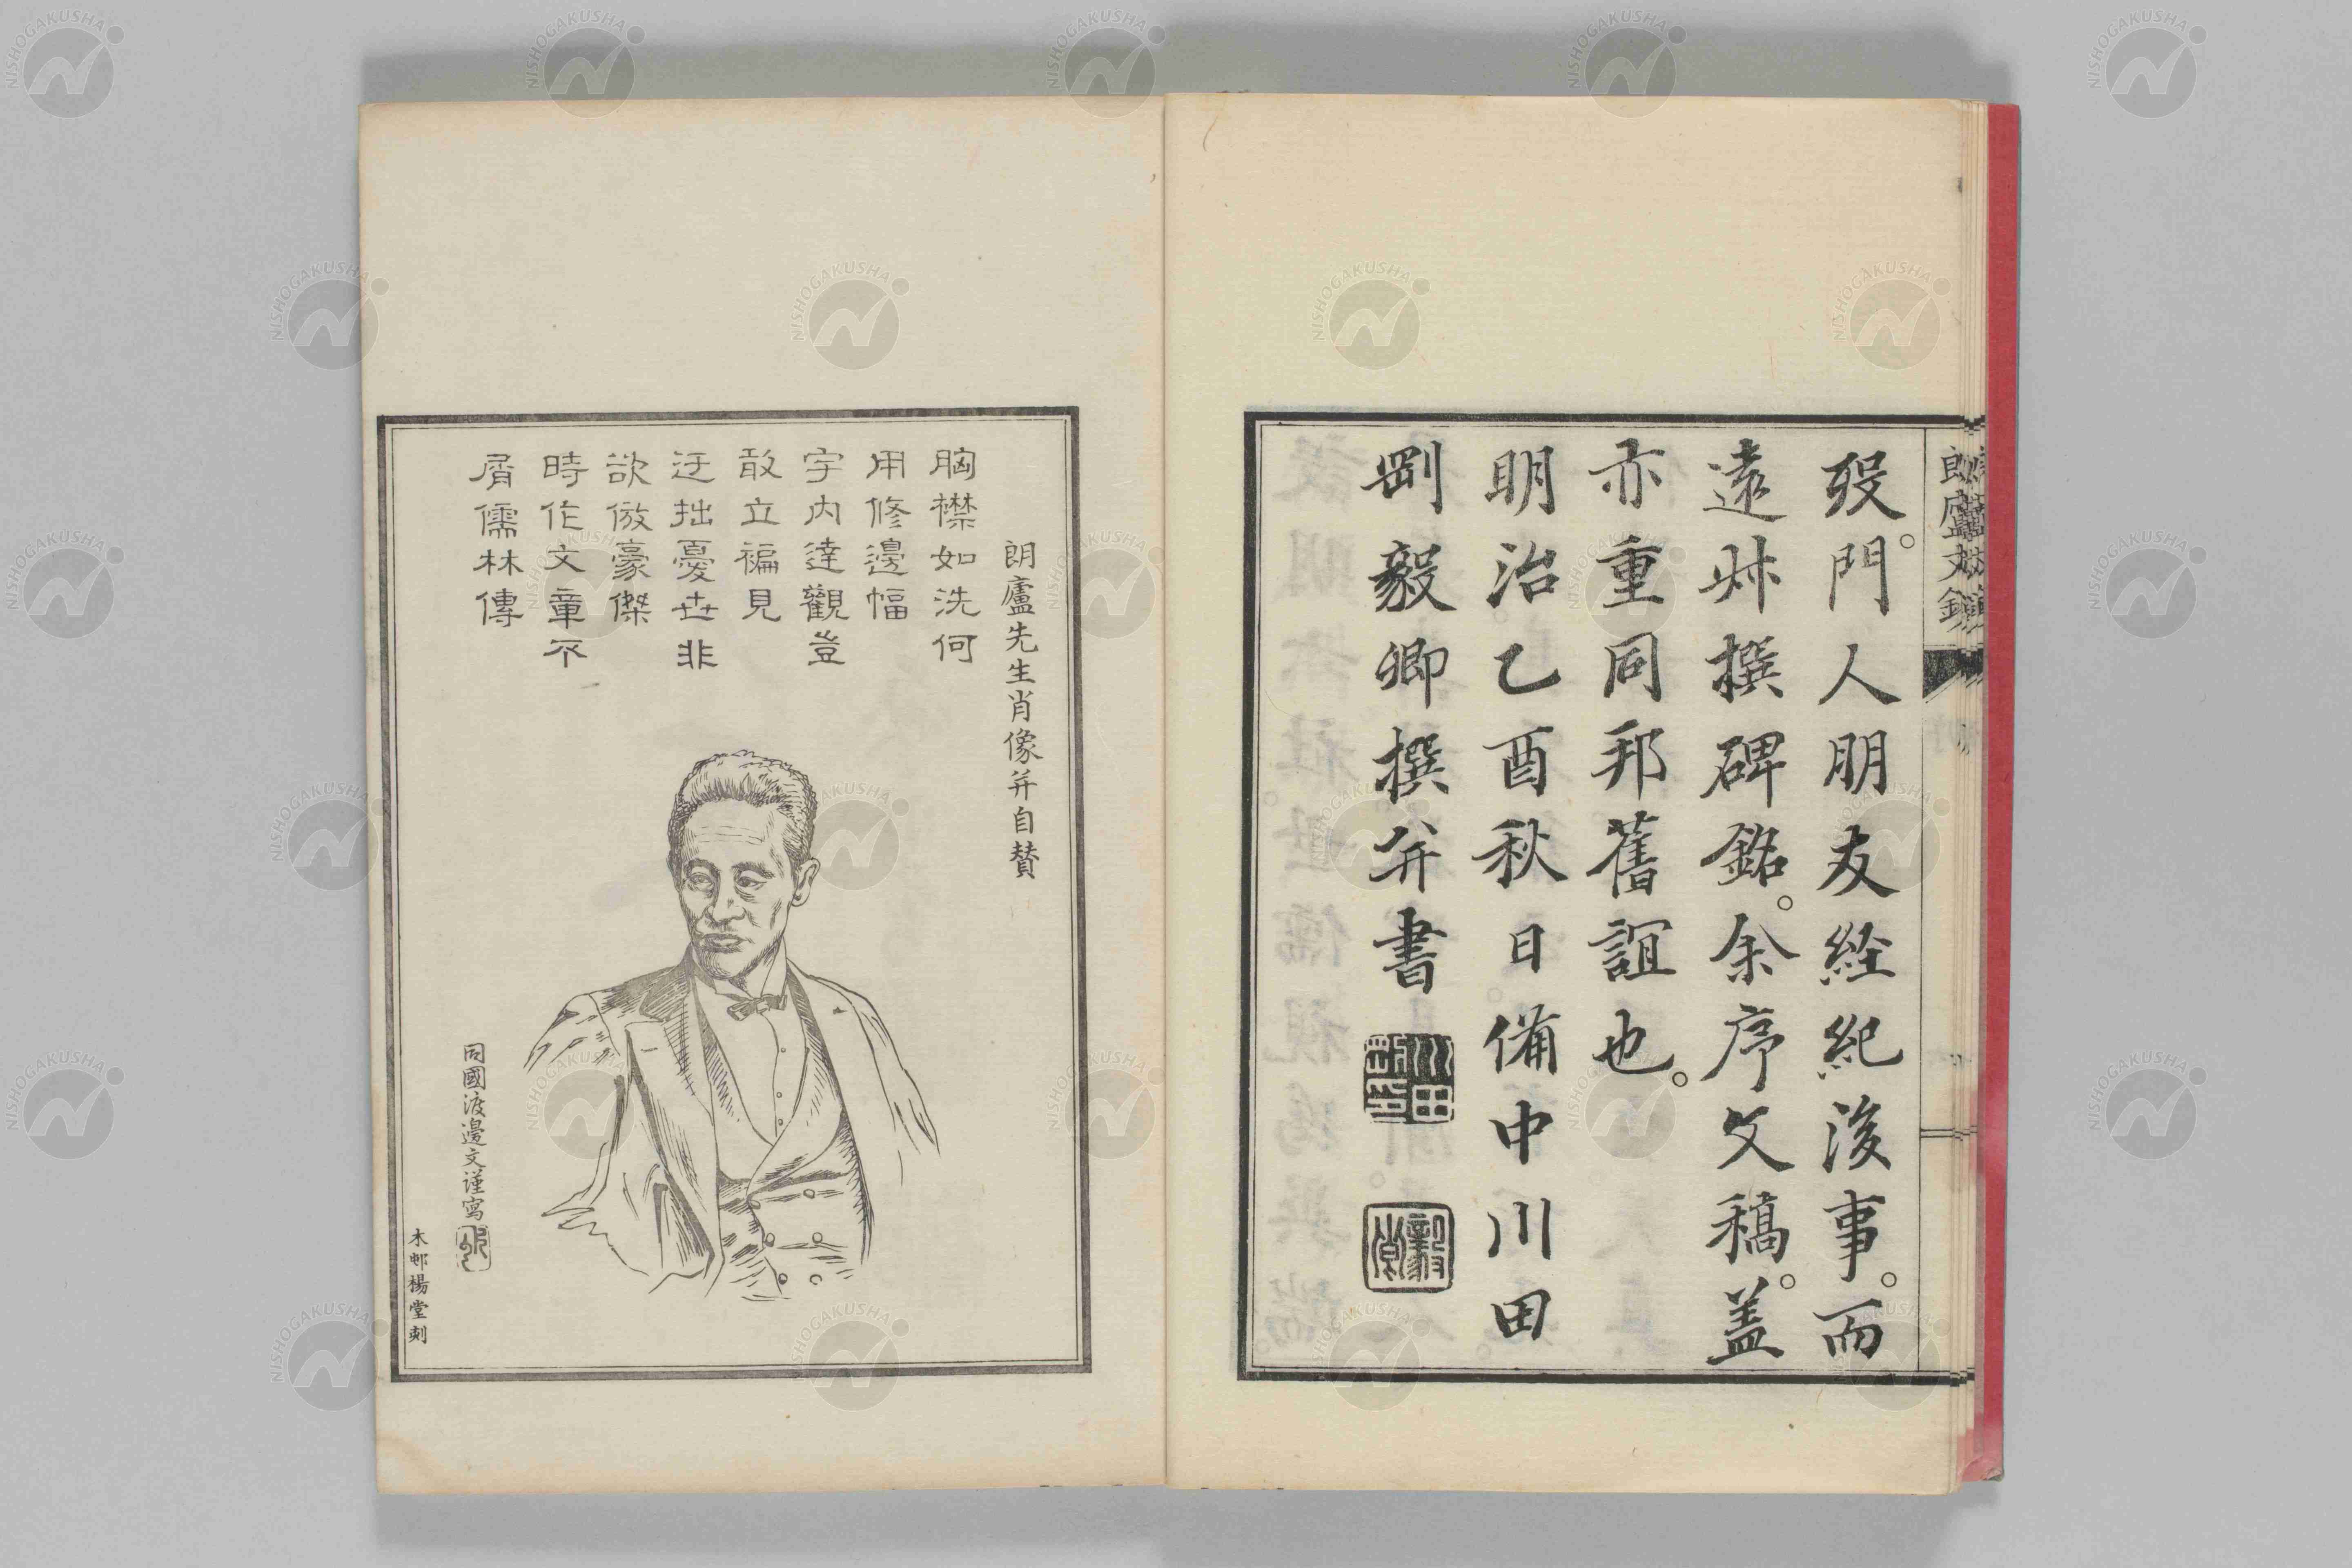 歿。門人朋友経紀後事。而
遠邨撰碑銘。余序文稿。蓋
亦重同邦舊誼也。
明治乙酉秋日備中川田
剛毅卿撰并書
朗廬先生肖像并自賛
胸襟如洗何
用修邊幅
宇内達觀豈
敢立褊見
迂拙憂世非
欲倣豪傑
時作文章不
屑儒林傳
同國渡邊文謹寫
木邨楊堂刻
NISHOGAKUSHA